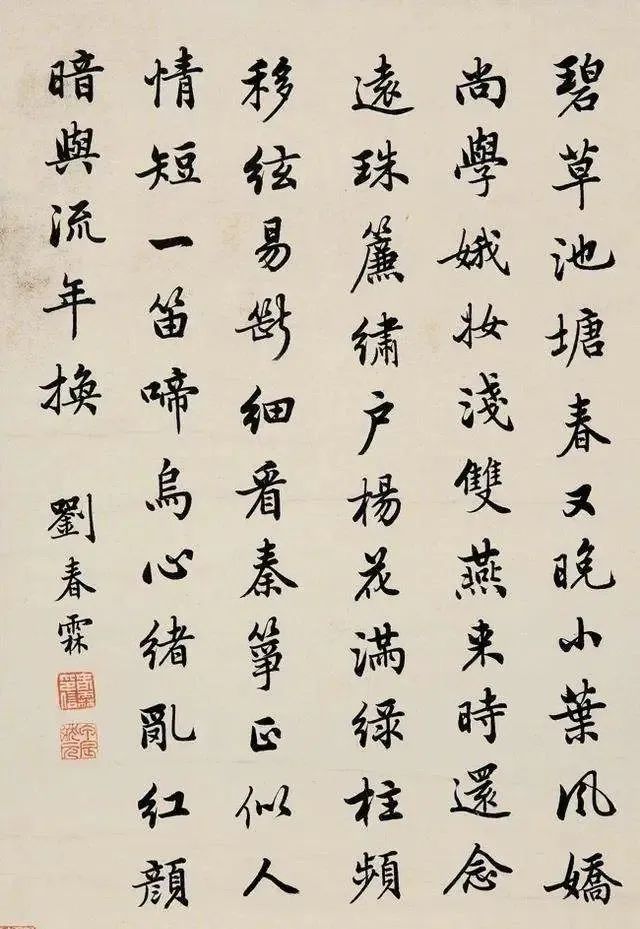 碧草池塘春又晚小葉風嬌
尚學娥妝淺雙燕来時還念
遠珠簾繡户楊花滿綠柱頻
移絃易斷細看秦箏正似人
情短一笛啼烏心緒亂紅顔
暗與流年換
劉春霖